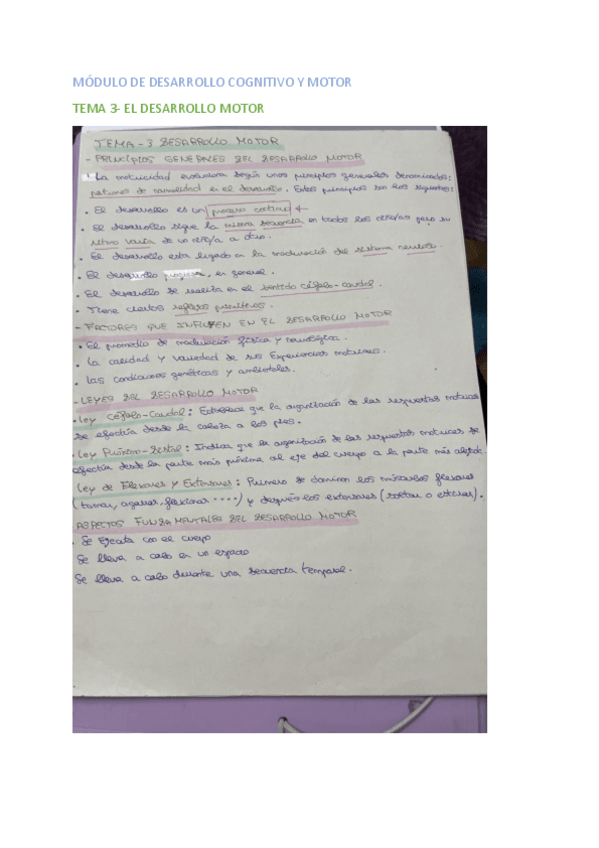 MÓDULO DE DESARROLLO COGNITIVO Y MOTOR
TEMA 3- EL DESARROLLO MOTOR
TEMA - 3 DESARROLLO MOTOR
- PRINCIPIOS GENERALES DEL DESARROLLO MOTOR
La motricidad evoluciona según unos principios generales denominados:
patrones de normalidad en el desarrollo. Estos principios son los siguientes:
• El desarrollo es un proceso continuo
• El desarrollo sigue la misma secuencia en todos los niños/as pero su
ritmo varía de un niño/a a otro.
• El desarrollo esta ligado en la maduración del sistema nervioso.
• El desarrollo progresa, en general.
• El desarrollo se realiza en el sentido céfalo-caudal.
• Tiene ciertos reflejos primitivos.
- FACTORES QUE INFLUYEN EN EL DESARROLLO MOTOR
• El promedio de maduración física y neurológica.
• La calidad y variedad de sus Experiencias motrices.
• Las condiciones genéticas y ambientales.
- LEYES DEL DESARROLLO MOTOR
• Ley Céfalo-Caudal: Establece que la organización de las respuestas motrices
se efectúa desde la cabeza a los pies.
• Ley Próximo-Distal: Indica que la organización de las respuestas motrices se
efectúa desde la parte más próxima al eje del cuerpo a la parte más alejada.
Ley de Flexores y Extensores: Primero se dominan los músculos flexores
(tomar, agarrar, flexionar ....) y después los extensores (soltar o estirar).
ASPECTOS FUNDAMENTALES DEL DESARROLLO MOTOR
. Se Ejecuta con el cuerpo
Se lleva a cabo en un espacio
Se lleva a cabo durante una secuencia temporal.